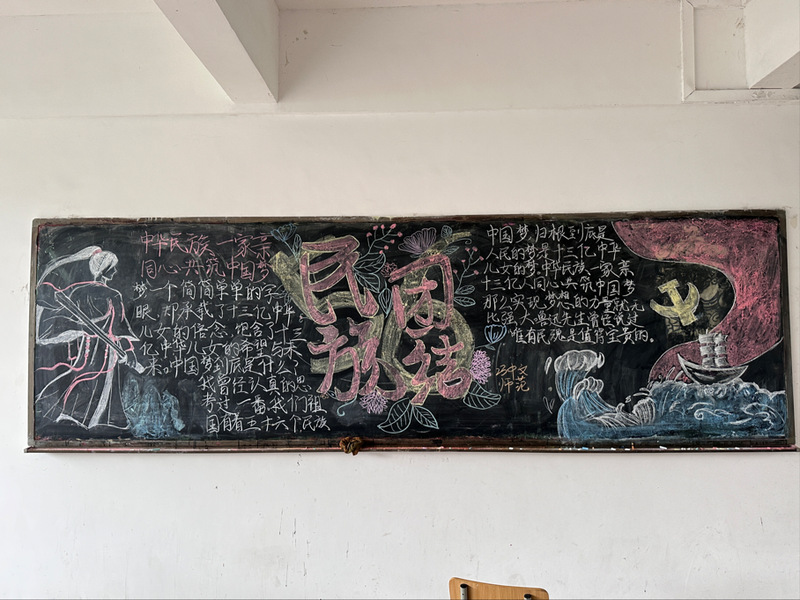 中华民族一家亲
同心共筑中国梦
梦一个简简单单的字
眼却承载了十三亿中华
儿女的信念饱含了十三
亿中华儿女的希望与未
来中国梦到底是什么
我曾经认真的思
考过一番,我们祖
国有着五十六个民族
民族
团结
中国梦归根到底是
人民的梦是十三亿中华
儿女的梦中华民族一家亲
十三亿人同心共筑中国梦
那么实现梦想的力量就无
比强大鲁迅先生曾经说过
唯有民魂是值得宝贵的。
中文
师范